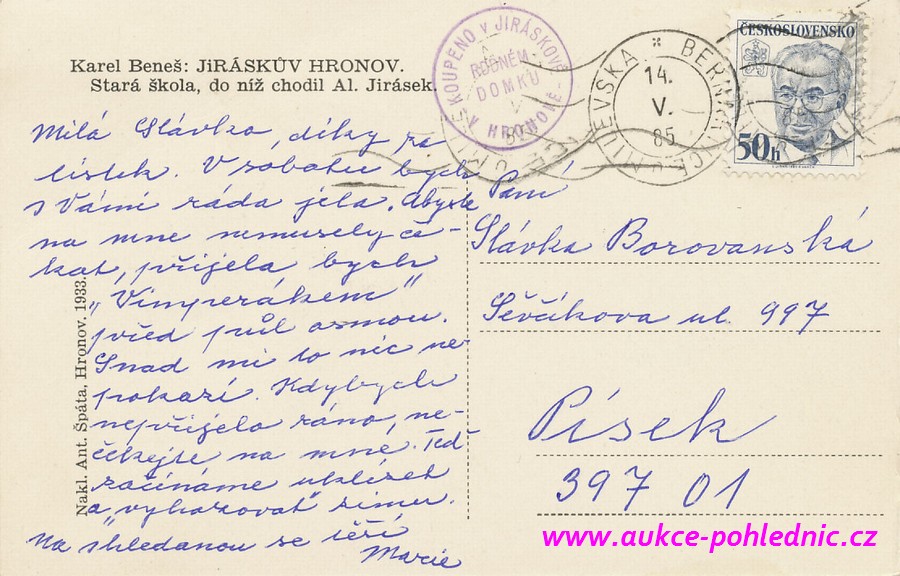 Karel Beneš: JiRÁSKŮV HRONOV.
Stará škola, do níž chodil Al. Jirásek.
Milá Slávko, díky za
lístek. V sobotu bych
s Vámi ráda jela. Abyste
na mne nemusely če-
kat, přijela bych
„Vimperákem"
před půl osmou.
Snad mi to nic ne
pokazí. Kdybych
nepřijela ráno, ne-
čekejte na mne. Teď
začínáme uklízet
a „vyhazovat" zimu.
Na shledanou se těší
Marie
Nakl. Ant. Špáta, Hronov. 1933.
KOUPENO V JIRÁSKOVĚ
RODNÉM
DOMKU
V HRONOVĚ
BERNARTICE U MILEVSKA
14.
V.
85
ČESKOSLOVENSKO
50h
Paní
Slávka Borovanská
Ševčíkova ul. 997
Písek
397 01
www.aukce-pohlednic.cz